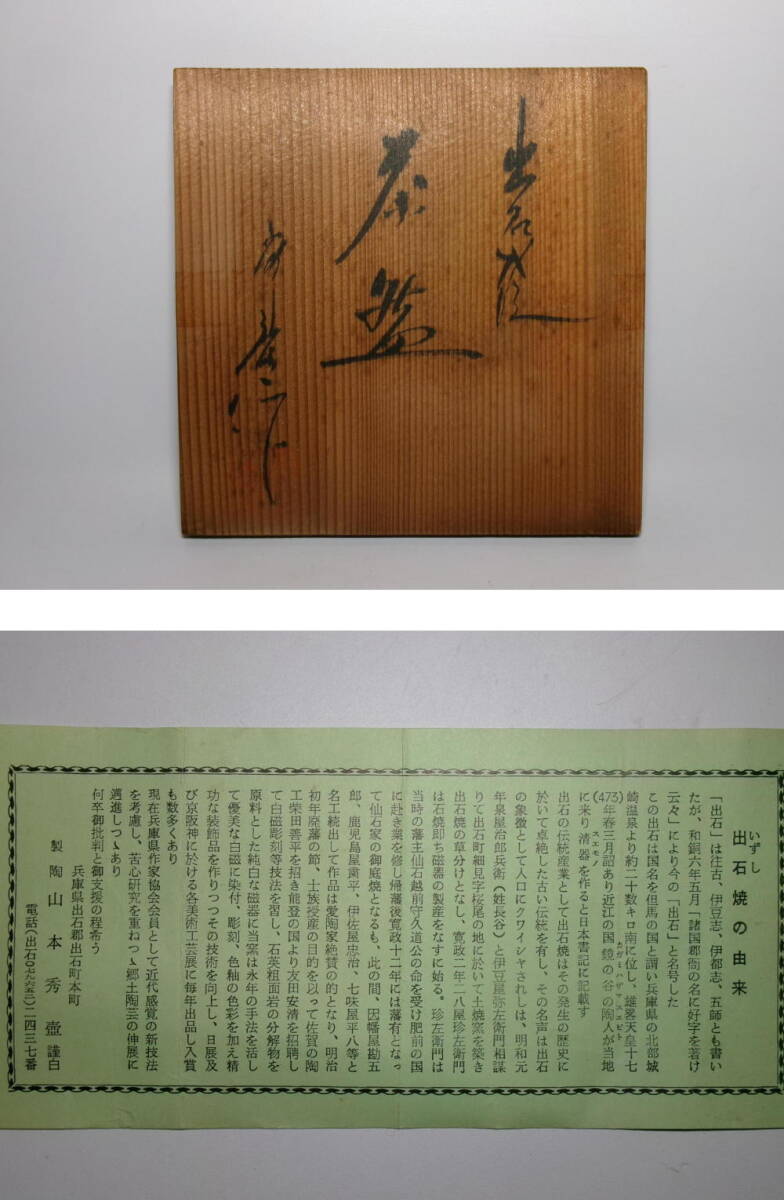 出石焼
茶盌
いずし
出石焼の由来
「出石」は往古、伊豆志、伊都志、五師とも書い
たが、和銅六年五月「諸国郡衙の名に好字を著け
云々」により今の「出石」と名号した
この出石は国名を但馬の国と謂い兵庫県の北部城
崎温泉より約二十数キロ南に位し、雄畧天皇十七
(473)年春三月詔あり近江の国鏡の谷の陶人が当地
に来り清器を作ると日本書記に記載す
スエモノ
出石の伝統産業として出石焼はその発生の歴史に
於いて卓絶した古い伝統を有し、その名声は出石
の象徴として人口にクワイシャされしは、明和元
年泉屋治郎兵衛(姓長谷)と伊豆屋弥左衛門相謀
りて出石町細見字桜尾の地に於いて土焼窯を築き
出石焼の草分けとなし、寛政二年二八屋珍左衛門
は石焼即ち磁器の製産をなすに始る。珍左衛門は
当時の藩主仙石越前守久道公の命を受け肥前の国
に赴き業を修し帰藩後寛政十二年には藩有となっ
て仙石家の御庭焼となるも、此の間、因幡屋勘五
郎、鹿児島屋粛平、伊佐屋忠治、七味屋平八等と
名工続出して作品は愛陶家絶賛の的となり、明治
初年廃藩の節、士族授産の目的を以って佐賀の陶
工柴田善平を招き能登の国より友田安清を招聘し
て白磁彫刻等技法を習し、石英粗面岩の分解物を
原料とした純白な磁器に当窯は永年の手法を活し
て優美な白磁に染付、彫刻、色釉の色彩を加え精
功な装飾品を作りつつその技術を向上し、日展及
び京阪神に於ける各美術工芸展に毎年出品し入賞
も数多くあり
現在兵庫県作家協会会員として近代感覚の新技法
を考慮し、苦心研究を重ねつゝ郷土陶芸の伸展に
邁進しつゝあり
何卒御批判と御支援の程希う
兵庫県出石郡出石町本町
製陶 山本秀壺 謹白
電話(出石〇七九六五二)二四三七番